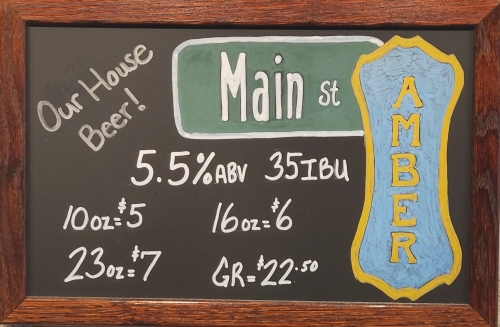 Our House
Beer!
Main St
AMBER
5.5% ABV 35 IBU
10oz=$5 16oz=$6
23oz=$7 GR=$22.50